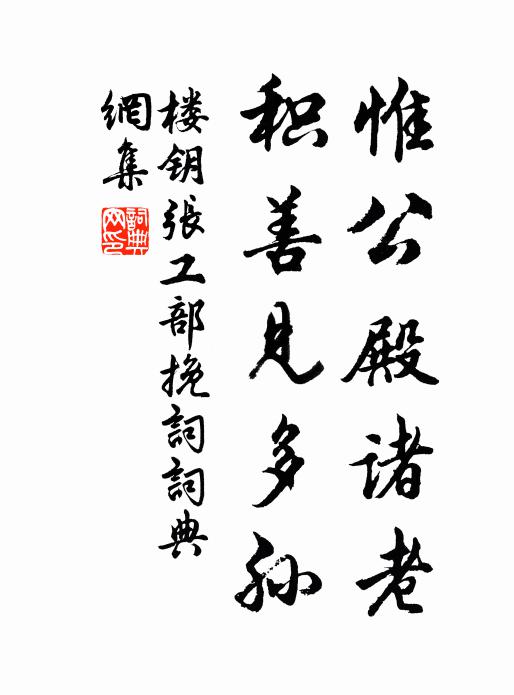 惟公殿诸老
积善见多孙
楼钥張工部挽詞詞典
網集
詞典網印